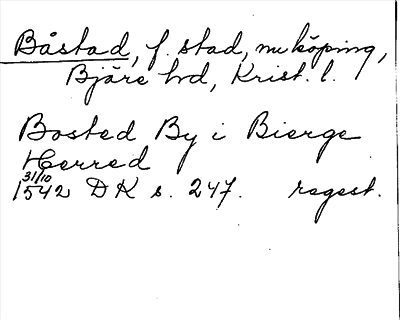 Båstad, f. stad, nu köping,
Bjäre hd, Krist. l.
Bosted By i Bierge
Herred
31/10
1542 DK s. 247. regest.